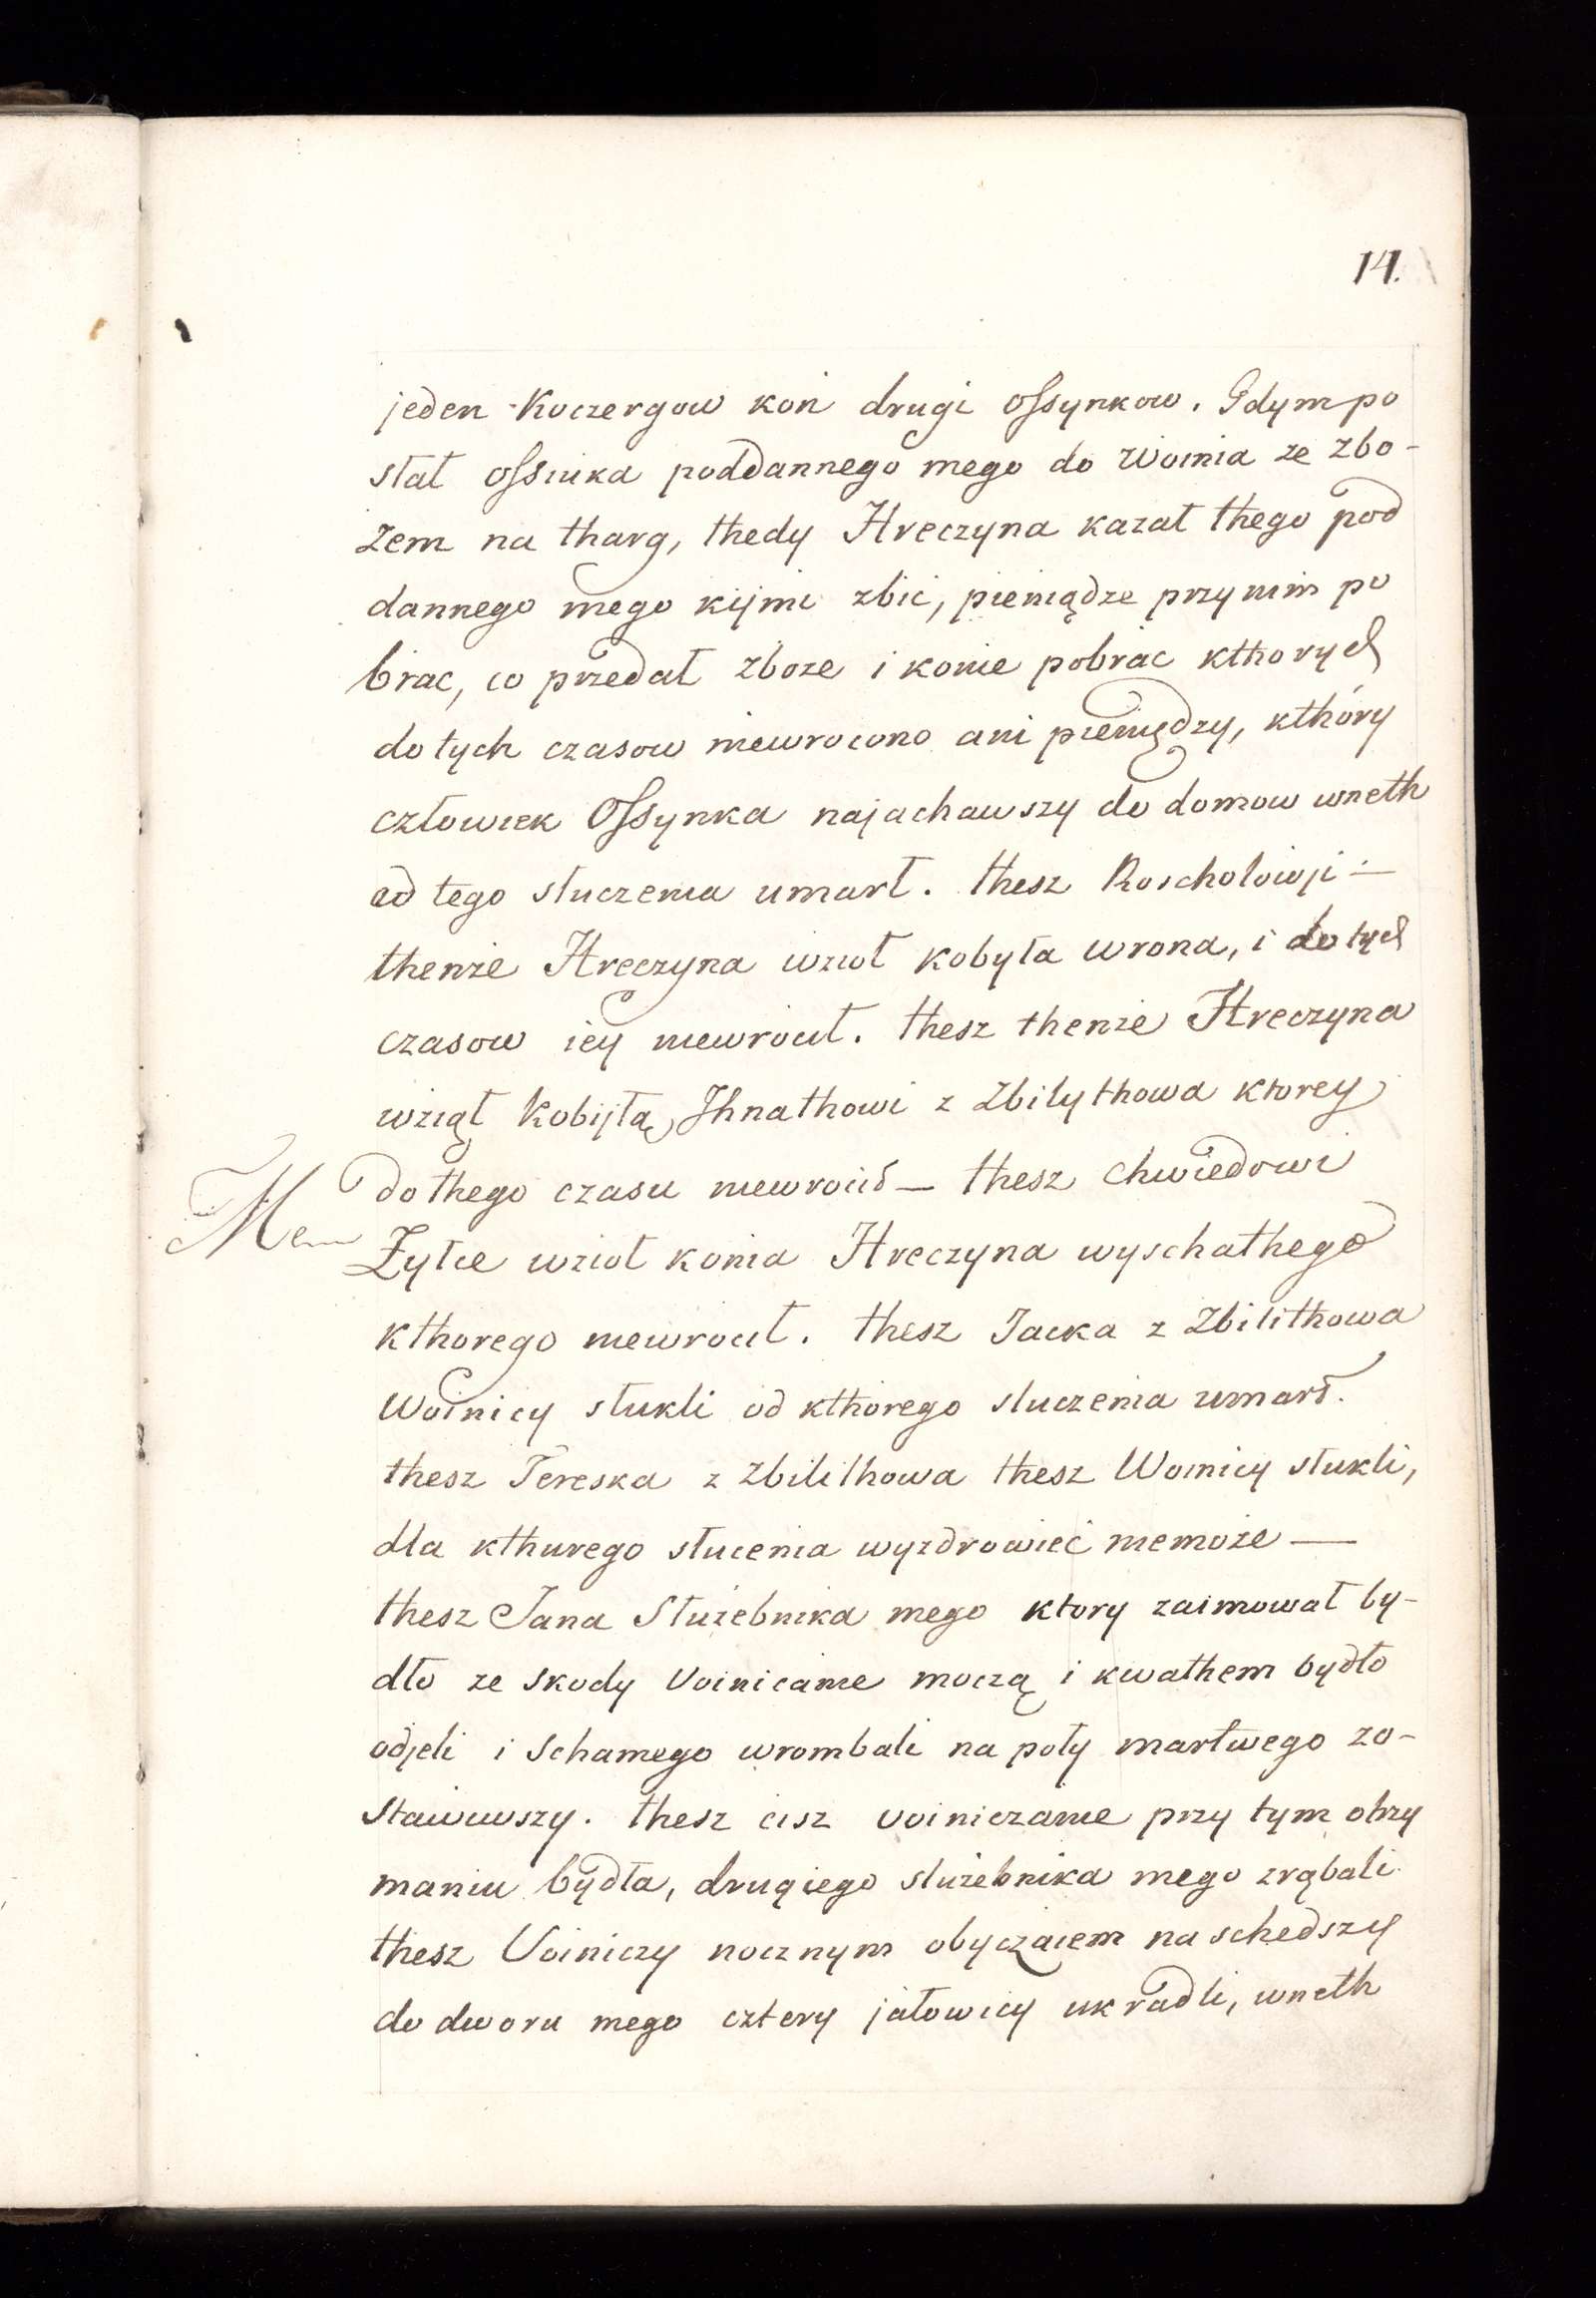 14.
jeden Koczergow koń drugi ossynkow. Gdym po
słał ossinka poddannego mego do Woinia ze zbo-
żem na tharg, thedy Hreczyna kazał thego pod
dannego mego kijmi zbić, pieniądze przy nim po
brac, co przedał zboże i konie pobrać kthorych
do tych czasow niewrocono ani pieniędzy, kthóry
człowiek Ossynka najachawszy do domow wneth
od tego stłuczenia umarł. thesz Roscholowji —
thenże Hreczyna wzioł kobyła wrona, i do tych
czasow iey niewrocił. thesz thenże Hreczyna
wziął kobijłą Jhnathowi z Zbilythowa ktorey
do thego czasu niewrócił — thesz Chwiedowi
Mem
Żyłce wzioł konia Hreczyna wyschathego
kthorego niewrocił. thesz Jacka z Zbilithowa
Woinicy stukli od kthorego stuczenia umarł.
thesz Tereska z Zbilithowa thesz Woinicy stukli,
dla kthurego stucenia wyzdrowieć niemoże —
thesz Jana Służebnika mego ktory zaimował by-
dło ze skody Voinicanie moczą i kwathem bydło
odjeli i schamego wrombali na poły martwego zo-
stawiwszy. thesz cisz voiniczanie przy tym otrzy
maniu bydła, drugiego służebnika mego zrąbali
thesz Voiniczy nocznym obyczaiem naschedszy
do dworu mego cztery jałowicy ukradli, wneth